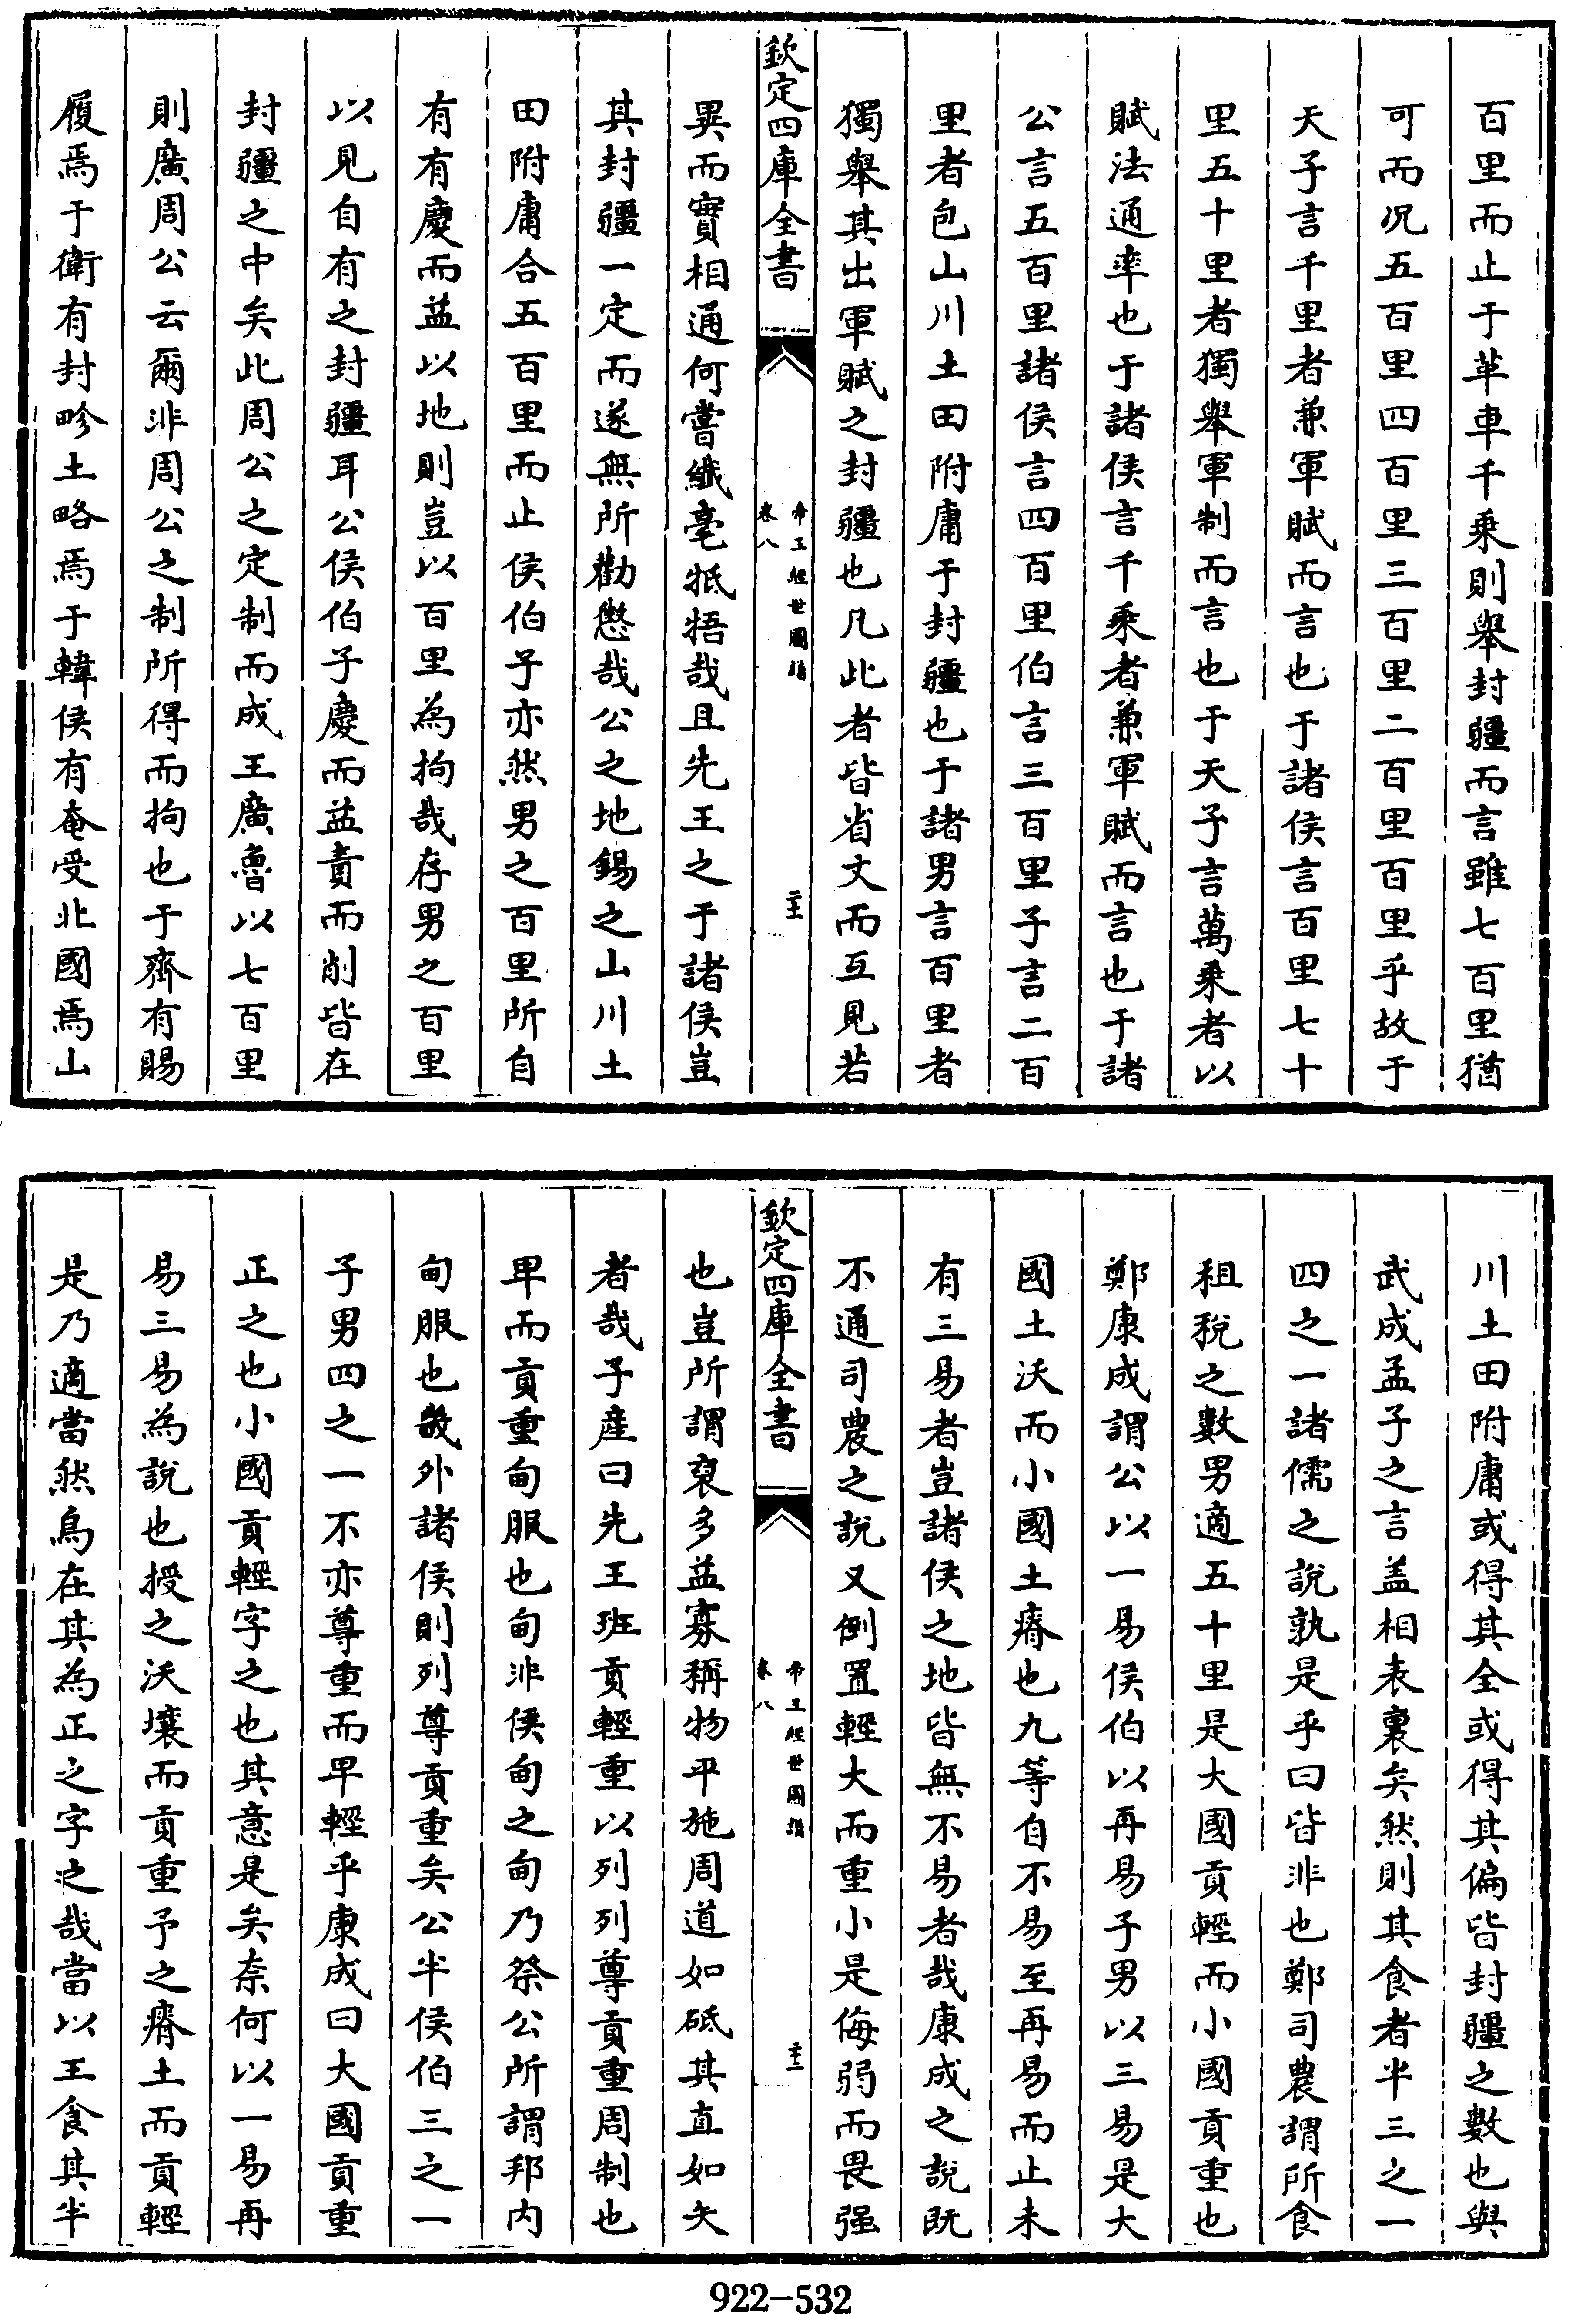 百里而止于革車千乘則舉封疆而言雖七百里猶
可而况五百里四百里三百里二百里百里乎故于
天子言千里者兼軍賦而言也于諸侯言百里七十
里五十里者獨舉軍制而言也于天子言萬乘者以
賦法通率也于諸侯言千乘者兼軍賦而言也于諸
公言五百里諸侯言四百里伯言三百里子言二百
里者包山川土田附庸于封疆也于諸男言百里者
獨舉其出軍賦之封疆也凡此者皆省文而互見若
欽定四庫全書
帝王經世圖譜
卷八
二十一
異而實相通何嘗纎毫牴牾哉且先王之于諸侯豈
其封疆一定而遂無所勸懲哉公之地錫之山川土
田附庸合五百里而止侯伯子亦然男之百里所自
有有慶而益以地則豈以百里為拘哉存男之百里
以見自有之封疆耳公侯伯子慶而益責而削皆在
封疆之中矣此周公之定制而成王廣魯以七百里
則廣周公云爾非周公之制所得而拘也于齊有賜
履焉于衛有封畛土略焉于韓侯有奄受北國焉山
川土田附庸或得其全或得其偏皆封疆之數也與
武成孟子之言盖相表裏矣然則其食者半三之一
四之一諸儒之說孰是乎曰皆非也鄭司農謂所食
租稅之數男適五十里是大國貢輕而小國貢重也
鄭康成謂公以一易侯伯以再易子男以三易是大
國土沃而小國土瘠也九等自不易至再易而止未
有三易者豈諸侯之地皆無不易者哉康成之說既
不通司農之說又倒置輕大而重小是侮弱而畏强
欽定四庫全書
帝王經世圖譜
卷八
二十二
也豈所謂裒多益寡稱物平施周道如砥其直如矢
者哉子産曰先王班貢輕重以列列尊貢重周制也
卑而貢重甸服也甸非侯甸之甸乃祭公所謂邦内
甸服也畿外諸侯則列尊貢重矣公半侯伯三之一
子男四之一不亦尊重而卑輕乎康成曰大國貢重
正之也小國貢輕字之也其意是矣奈何以一易再
易三易為說也授之沃壤而貢重予之瘠土而貢輕
是乃適當然烏在其為正之字之哉當以王食其半
922-532